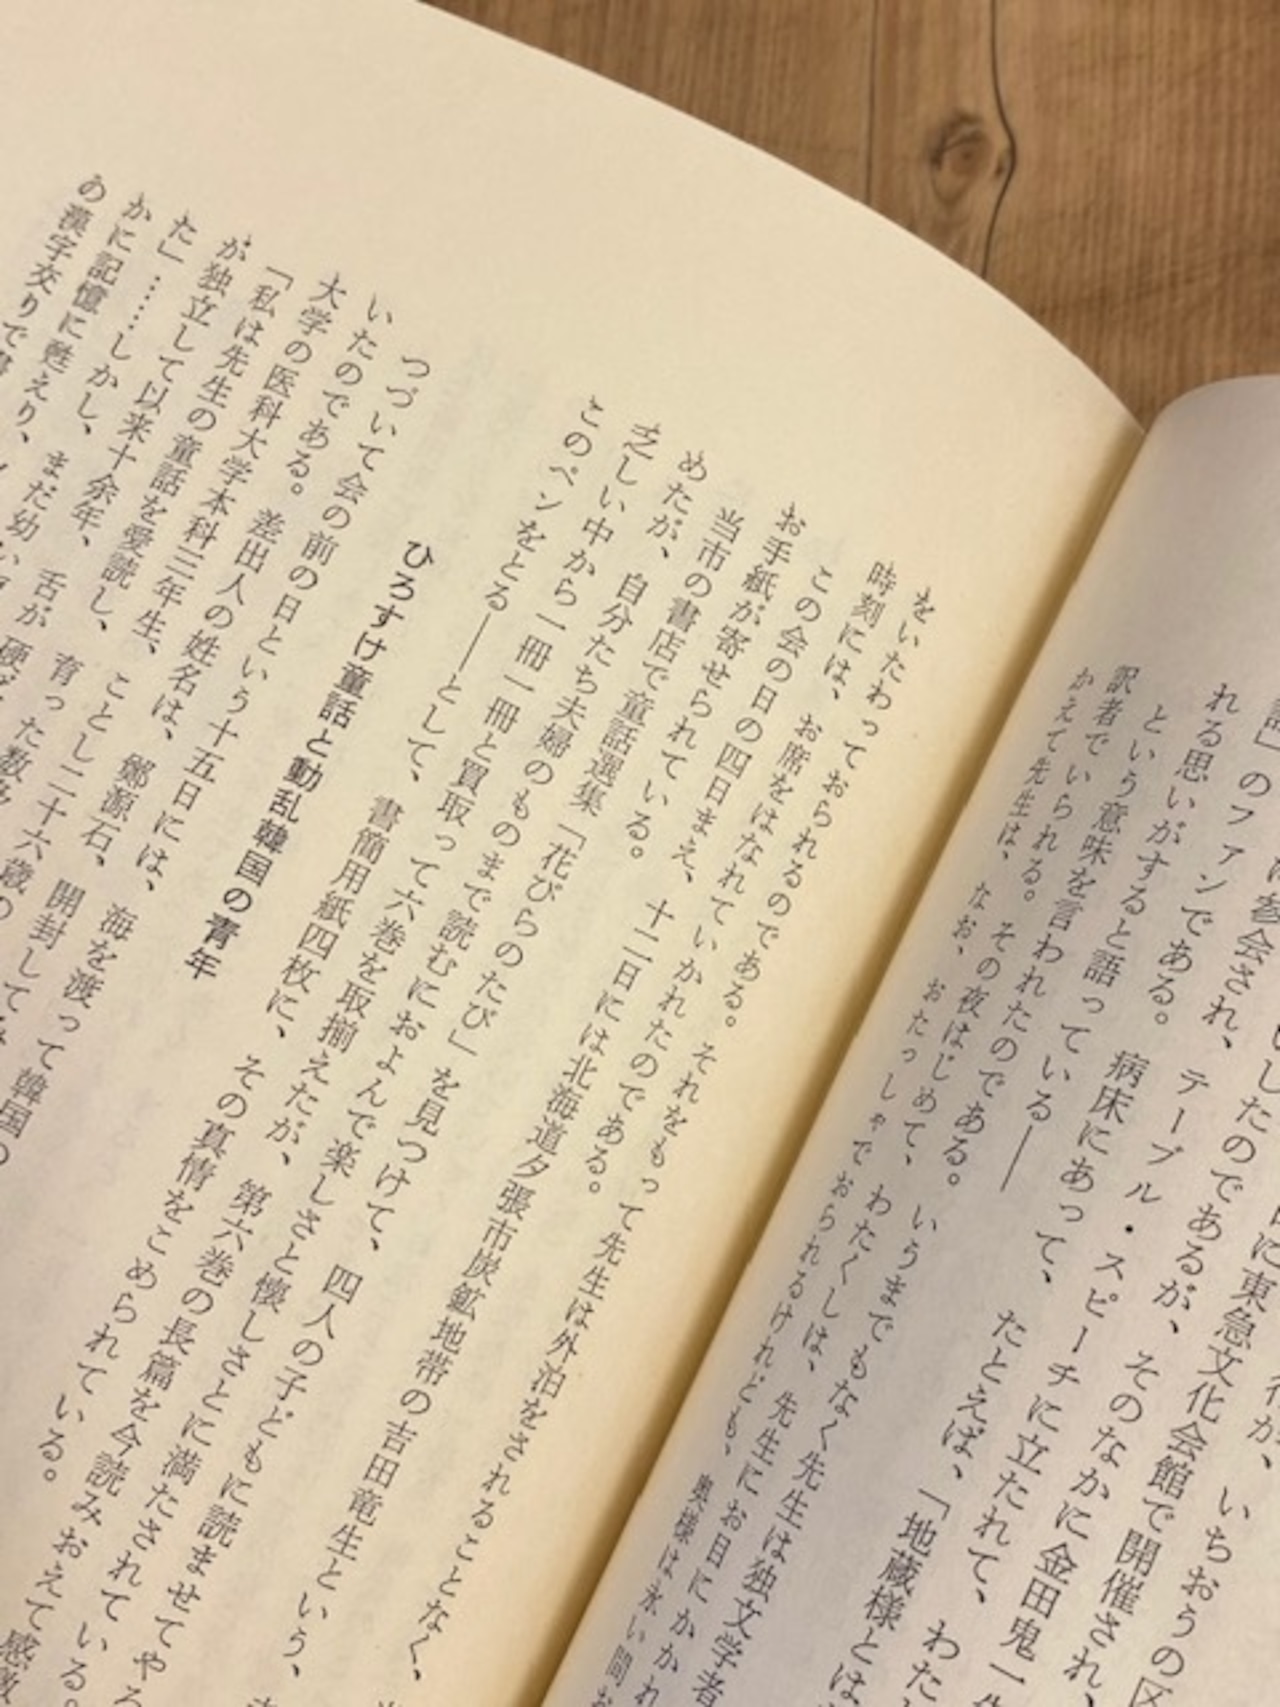 は参会され、テーブル・スピーチに立たれて、わた
のファンである。病床にあって、たとえば、「地蔵様とは
れる思いがする
という意味を言われたのである。いうまでもなく先生は独文学者
訳者でいられる。その夜はじめて、わたくしは、先生にお目にかかれ
かえて先生は、なお、おたっしゃでおられるけれども、奥様は永い間お
をいたわっておられるのである。それをもって先生は外泊をされることなく、
時刻には、お席をはなれていかれたのである。
この会の日の四日まえ、十二日には北海道夕張市炭鉱地帯の吉田竜生という、
お手紙が寄せられている。
当市の書店で童話選集「花びらのたび」を見つけて、四人の子どもに読ませてやろ
めたが、自分たち夫婦のものまで読むにおよんで楽しさと懐しさとに満たされている。
乏しい中から一冊一冊と買取って六巻を取揃えたが、第六巻の長篇を今読みおえて感激
このペンをとる――として、書簡用紙四枚に、その真情をこめられている。
ひろすけ童話と動乱韓国の青年
つづいて会の前の日という十五日には、海を渡って韓国の
いたのである。差出人の姓名は、鄭源石、開封して
大学の医科大学本科三年生、ことし二十六歳の
「私は先生の童話を愛読し、育った数多
が独立して以来十余年、舌が硬
た」……しかし、まだ幼い
かに記憶に甦えり、
の漢字交りで書